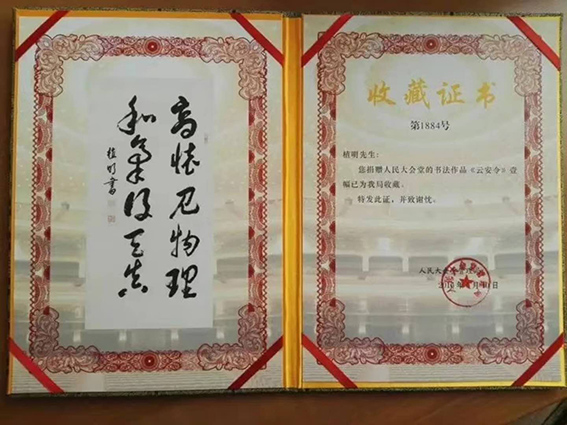 高懷見物理
和氣得天真
植明書
收藏证书
第1884号
植明先生：
您捐赠人民大会堂的书法作品《云安令》壹
幅已为我局收藏。
特发此证，并致谢忱。
人民大会堂